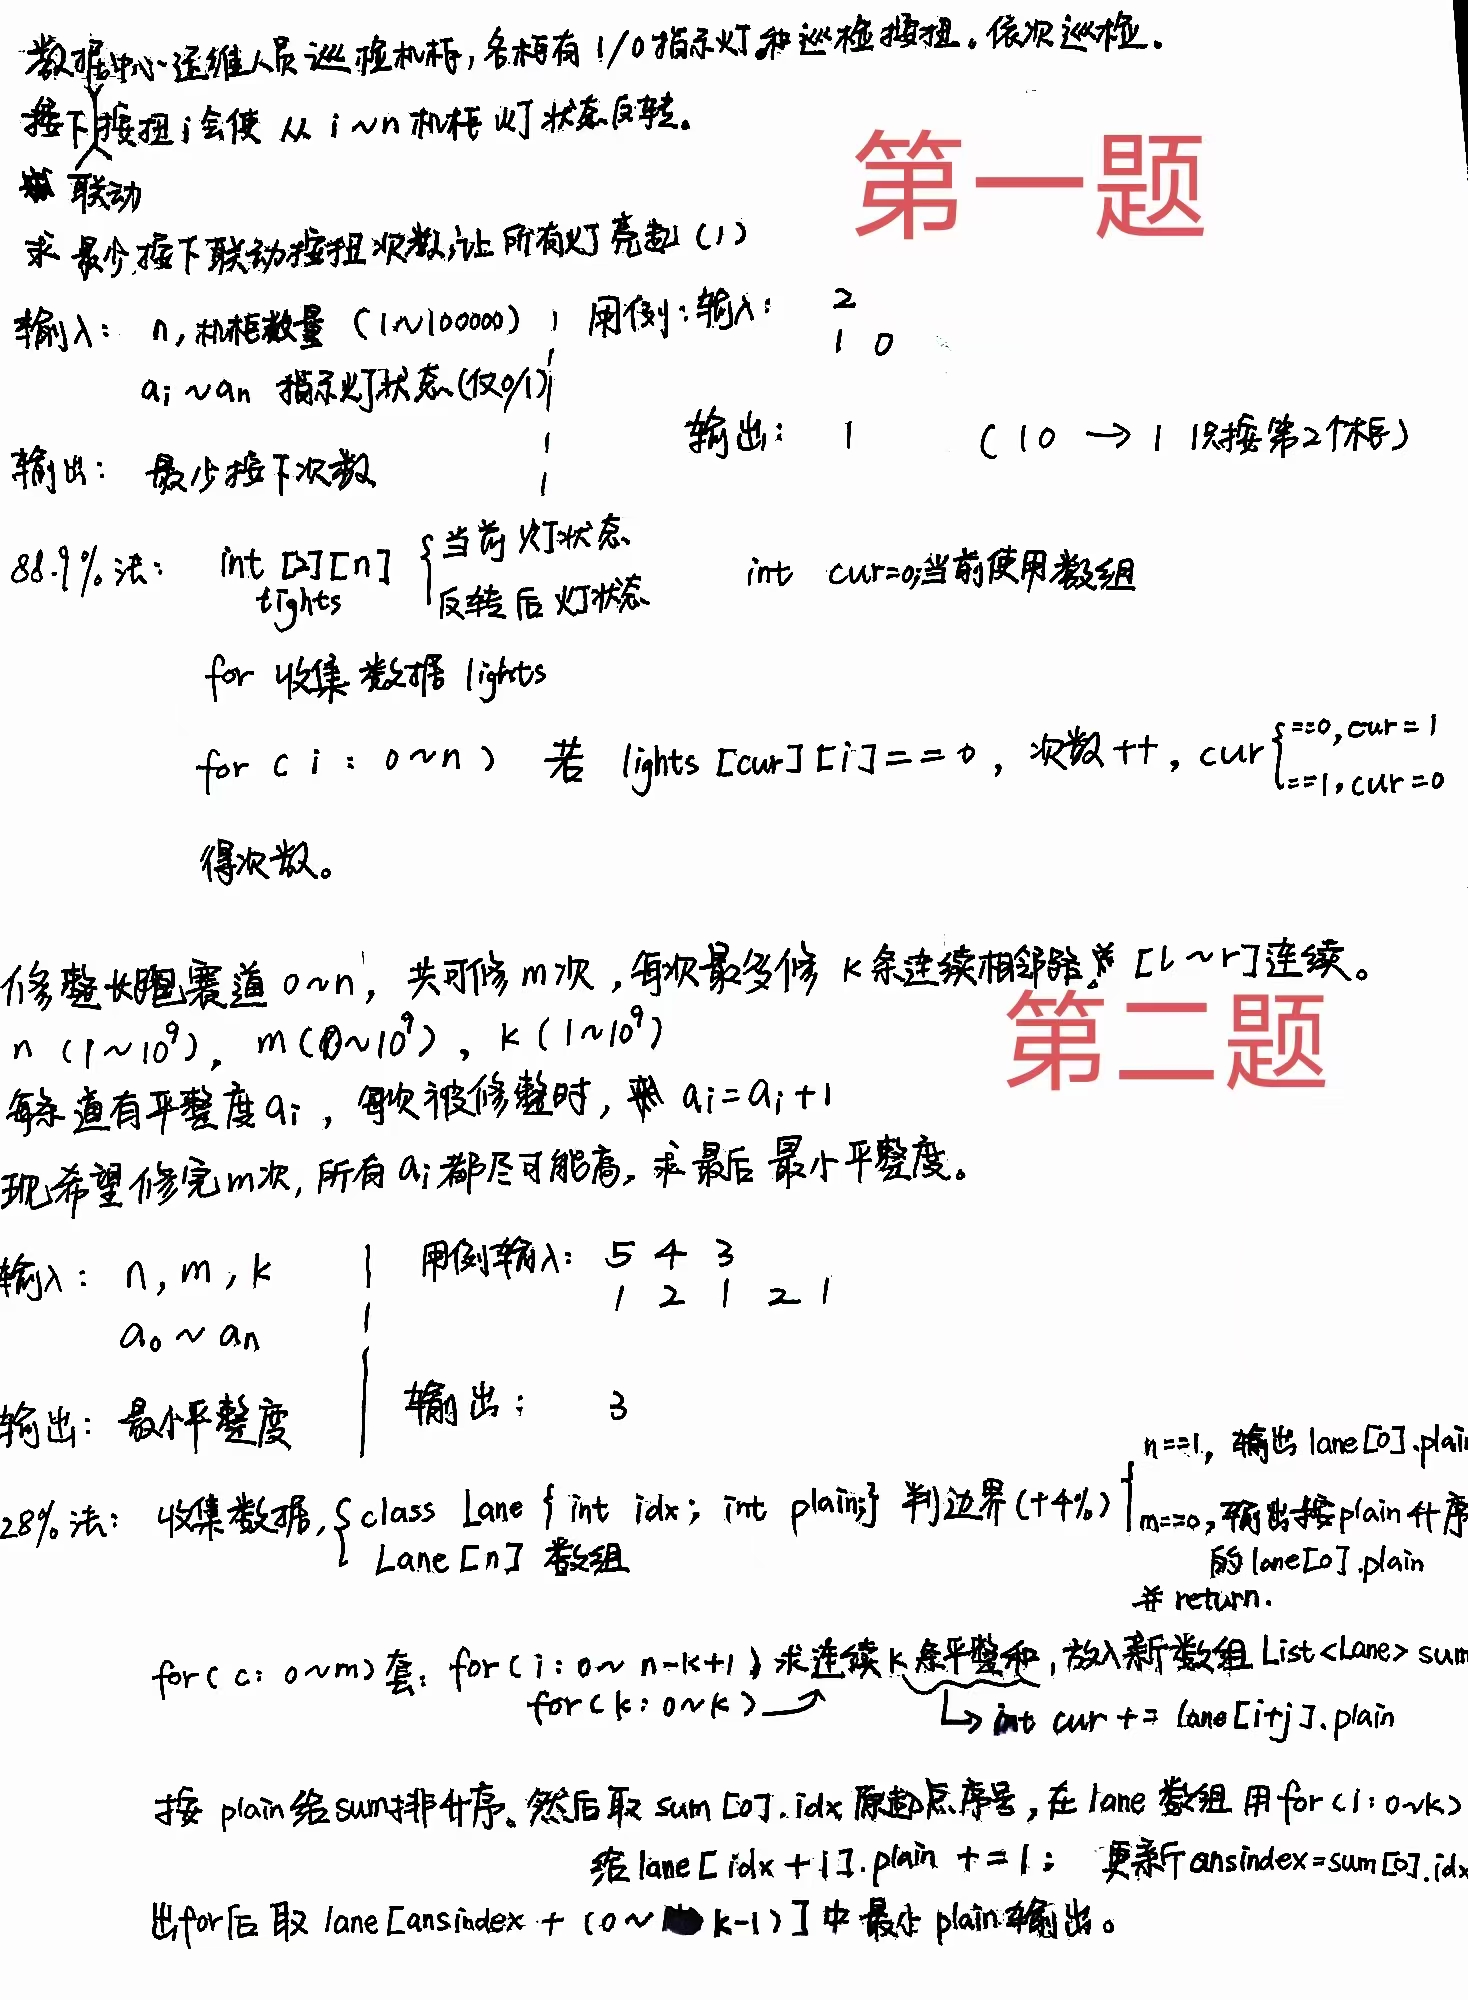 数据中心运维人员巡检机柜,各柜有1/0指示灯和巡检按扭。依次巡检.
按下按扭i会使 从 i~n机柜灯状态反转。
联动
第一题
求 最少按下联动按扭次数,让所有灯亮起(1)
输入: n,机柜数量 (1~100000) 用例:输入: 2
1 0
ai~an 指示灯状态(仅0/1)
输出: 1 (10 → 1 1只按第2个柜)
输出: 最少按下次数
88.9%法: int [2][n] { 当前灯状态
lights 反转后灯状态
int cur=0;当前使用数组
for 收集数据 lights
for ( i : 0~n ) 若 lights [cur][i]==0, 次数++, cur { ==0,cur=1
==1,cur=0
得次数。
修整长跑赛道0~n, 共可修m次,每次最多修 k条连续相邻路。[l~r]连续。
第二题
n (1~10⁹), m(0~10⁹), k(1~10⁹)
每条道有平整度ai, 每次被修整时, ai=ai+1
现希望修完m次,所有ai都尽可能高,求最后最小平整度。
输入: n, m, k 用例输入: 5 4 3
1 2 1 2 1
a0~an
输出: 最小平整度 输出: 3
28%法: 收集数据, { class Lane { int idx; int plain;} 判边界(+4%) { n==1, 输出lane[0].plain
Lane[n] 数组
m==0,输出按plain升序
的lane[0].plain
并 return.
for( c: 0~m)套: for(i:0~ n-k+1)求连续k条平整和,放入新数组List<Lane> sum
for(k:0~k) → int cur += lane[i+j].plain
按 plain给sum排升序。然后取 sum[0].idx原起点序号,在lane数组用for(i:0~k)
给lane[idx+i].plain +=1; 更新ansindex=sum[0].idx
出for后取 lane[ansindex + (0~ k-1)]中最小plain输出。